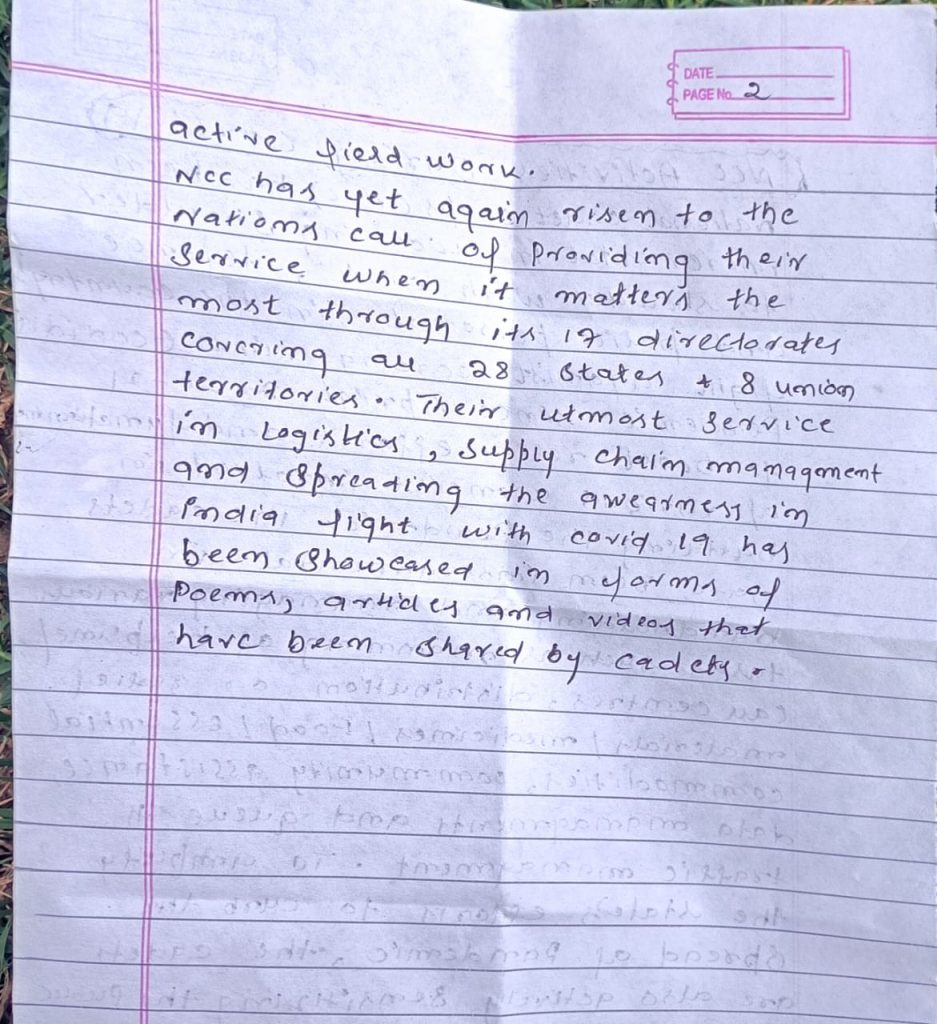 DATE
PAGE No. 2
active field work.
NCC has yet again risen to the
Nations call of providing their
Service when it matters the
most through its 17 directorates
covering all 28 states & 8 union
territories. Their utmost service
in Logistics, supply chain management
and spreading the awearness in
India fight with covid 19 has
been showcased in forms of
Poems, articles and videos that
have been shared by cadets.